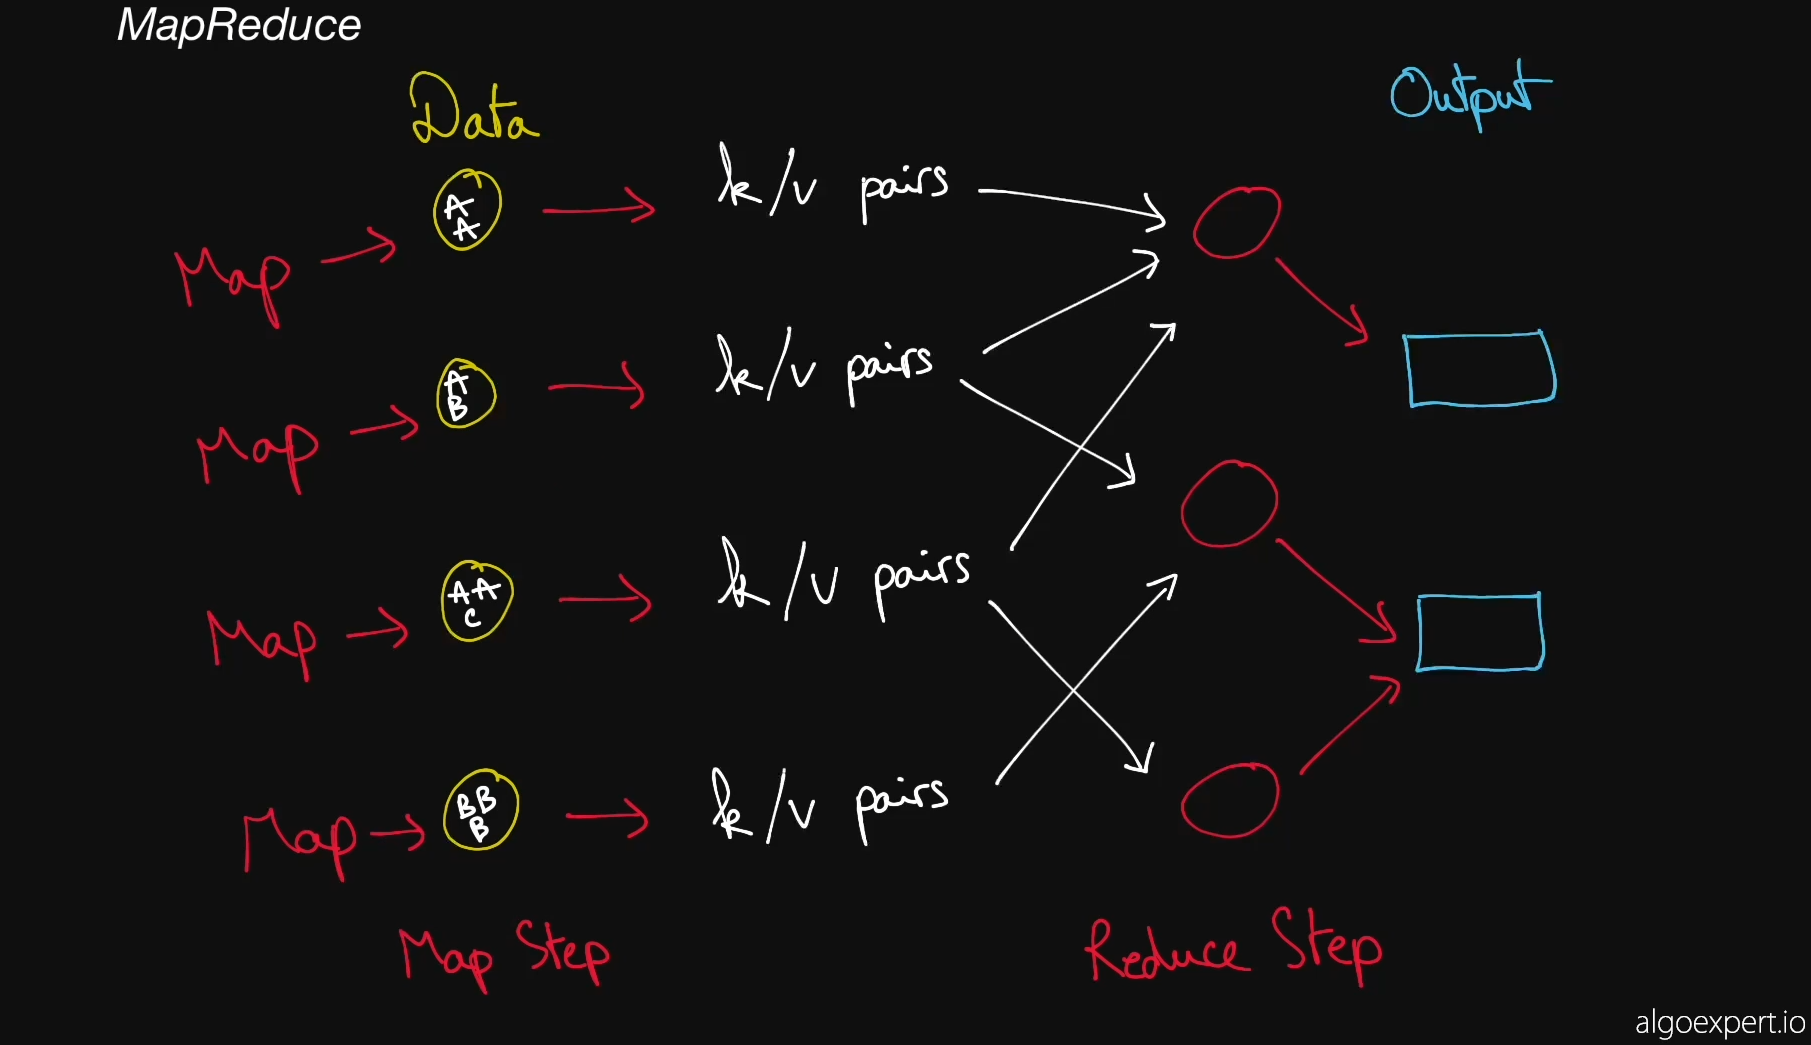 MapReduce
Data
Output
A
A
k/v pairs
Map
A
B
k/v pairs
Map
AA
C
k/v pairs
Map
BB
B
k/v pairs
Map
Map Step
Reduce Step
algoexpert.io